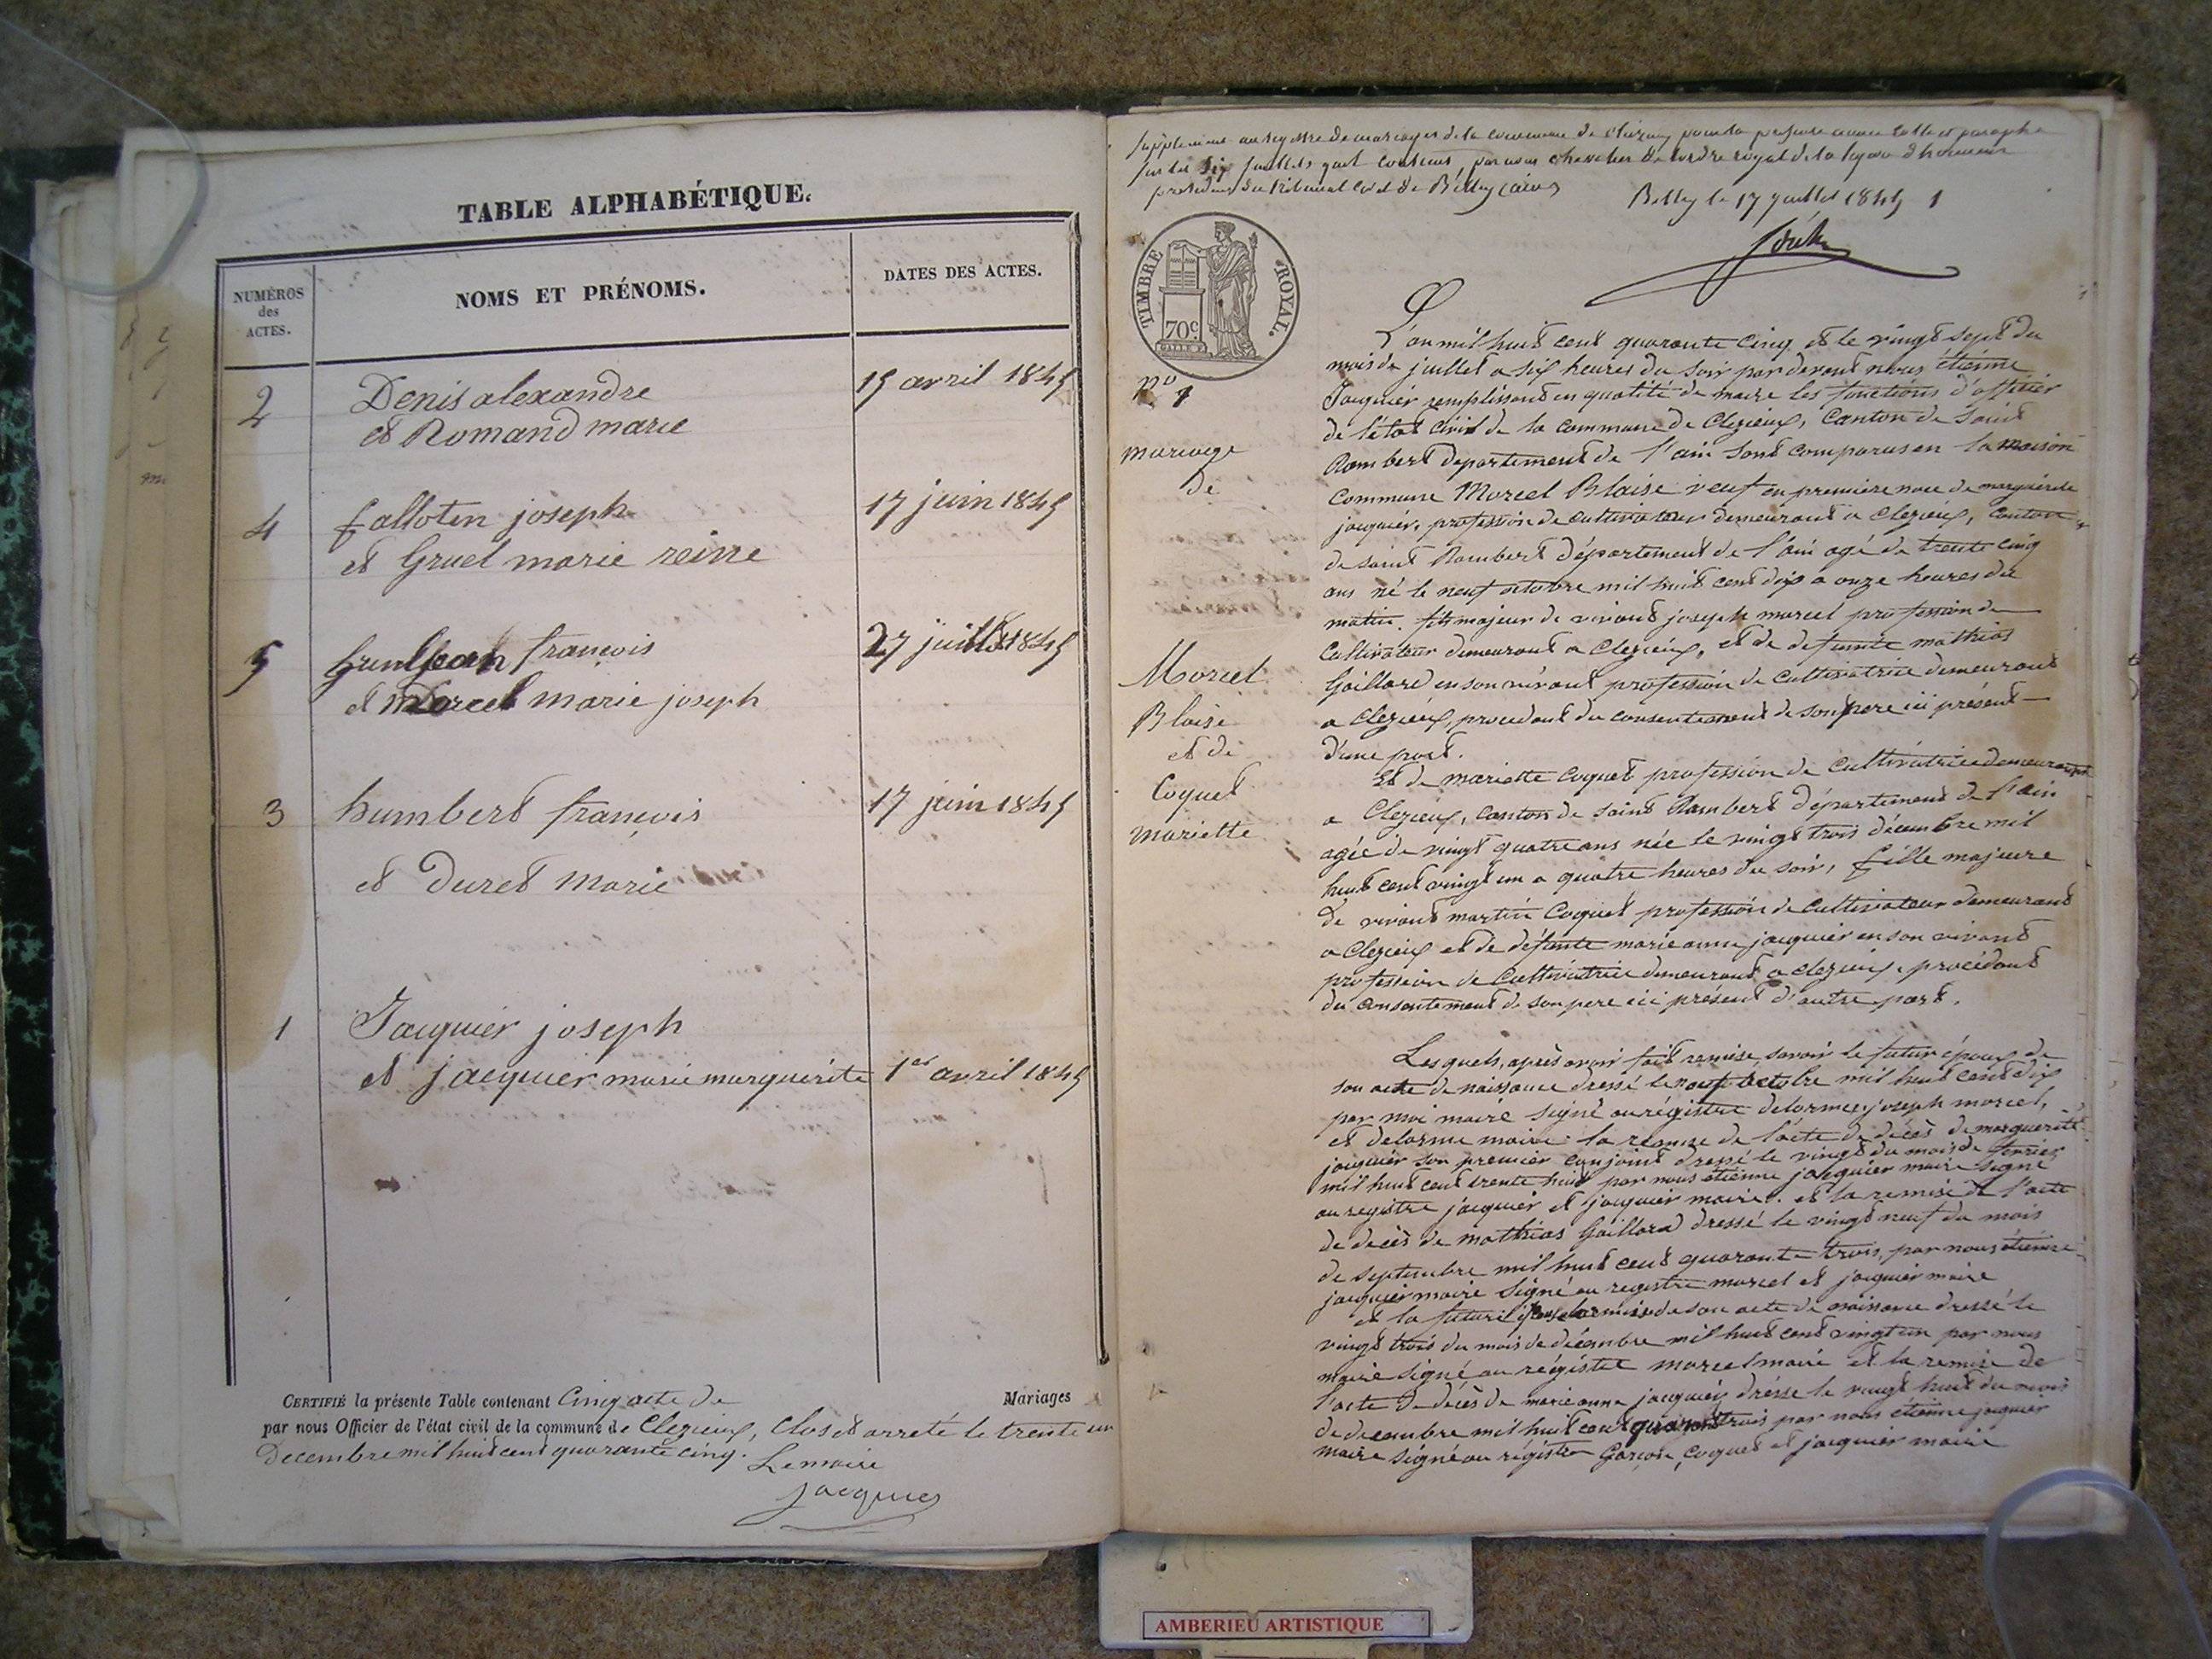 TABLE ALPHABÉTIQUE.
NUMÉROS
des
ACTES.
NOMS ET PRÉNOMS.
DATES DES ACTES.
2 Denis alexandre 15 avril 1845
et Romand marie
4 falloten joseph 17 juin 1845
et Gruel marie reine
5 françois 27 juillet 1845
et Morcel marie joseph
3 humbert françois 17 juin 1845
et Duret Marie
1 Jacquier joseph
et jacquier marie marguerite 1er avril 1845
CERTIFIÉ la présente Table contenant Cinq acte de Mariages
par nous Officier de l'état civil de la commune de Clezieux, Clos et arreté le trente un
Decembre mil huit cent quarante cinq. Lemaire
jacquier
Supplement au registre de mariages de la commune de
feuillets par nous chevalier de l'ordre royal de la legion d'honneur
president du tribunal civil de Belley (ain)
Belley le 17 juillet 1845 1
TIMBRE ROYAL.
70c
No 1
mariage
de
Morcel
Blaise
et de
Coquet
mariette
L'an mil huit cent quarante cinq et le vingt sept du
mois de juillet a six heures du soir par devant nous étienne
Jacquier remplissant en qualité de maire les fonctions d'officier
de l'état civil de la commune de Clezieux, Canton de Saint
Rambert departement de l'ain sont comparus en la maison
commune Morcel Blaise veuf en premiere noce de marguerite
jacquier, profession de cultivateur demeurant a Clezieux, Canton
de saint Rambert département de l'ain agé de trente cinq
ans né le neuf octobre mil huit cent dix a onze heures du
matin. fils majeur de vivant joseph morcel profession de
Cultivateur demeurant a Clezieux, et de defunte mathias
Gaillard en son vivant profession de Cultivatrice demeurant
a Clezieux, procedant du consentement de son pere ici présent
d'une part.
Et de mariette Coquet profession de Cultivatrice demeurant
a Clezieux, Canton de saint Rambert département de l'ain
agée de vingt quatre ans née le vingt trois décembre mil
huit cent vingt un a quatre heures du soir, fille majeure
de vivant martin Coquet profession de Cultivateur demeurant
a Clezieux et de défunte marie anne jacquier en son vivant
profession de Cultivatrice demeurant a clezieux, procédant
du consentement de son pere ici présent d'autre part.
Lesquels, après avoir fait remise, savoir le futur époux de
son acte de naissance dressé le neuf octobre mil huit cent dix
par moi maire signé au régistre delorme, joseph morcel,
et delorme maire. la remise de l'acte de décès de marguerite
jacquier son premier conjoint dressé le vingt du mois de fevrier
mil huit cent trente huit par nous étienne jacquier maire signé
au registre jacquier et jacquier maire. et la remise de l'acte
de décès de mathias Gaillard dressé le vingt neuf du mois
de septembre mil huit cent quarante trois, par nous étienne
jacquier maire signé au registre morcel et jacquier maire
et la future de son acte de naissance dressé le
vingt trois du mois de décembre mil huit cent vingt un par nous
maire signé au régistre morcel maire et la remise de
l'acte de décès de marie anne jacquier dressé le vingt huit du mois
de decembre mil huit cent quarante trois par nous étienne jacquier
maire signé au régistre Garçon, Coquet et jacquier maire
AMBERIEU ARTISTIQUE